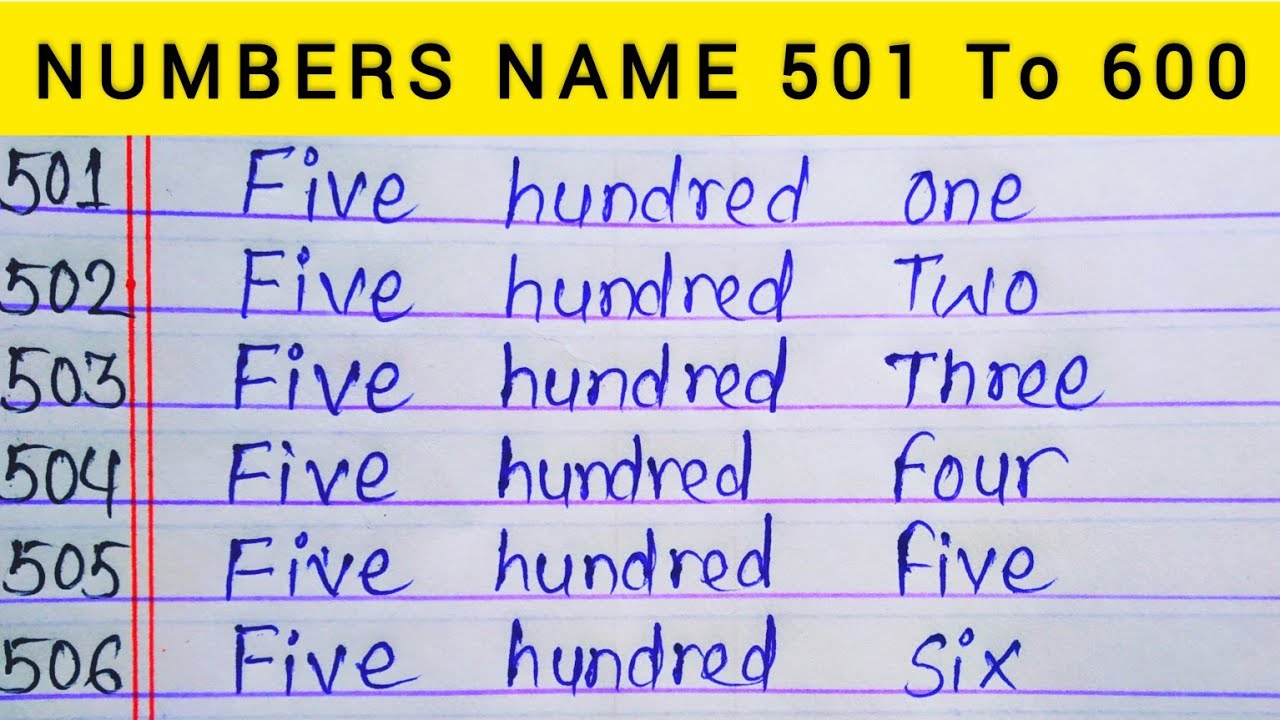 NUMBERS NAME 501 To 600
501 Five hundred one
502 Five hundred Two
503 Five hundred Three
504 Five hundred four
505 Five hundred five
506 Five hundred six